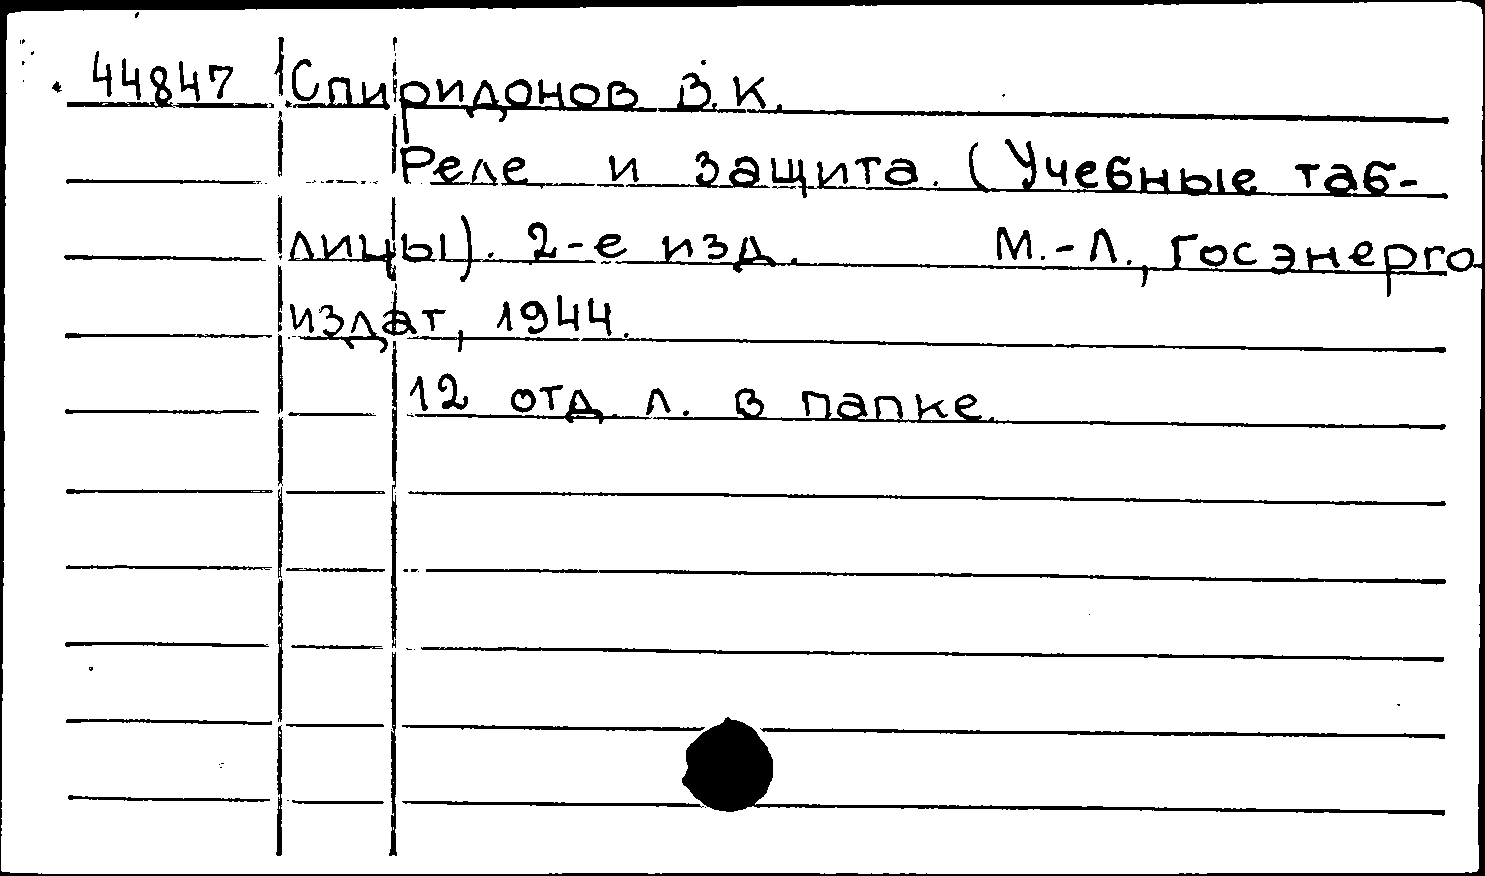 44847 Спиридонов В.К.
Реле и защита. (Учебные таб-
лицы). 2-е изд. М.-Л., Госэнерго
издат, 1944.
12 отд. л. в папке.